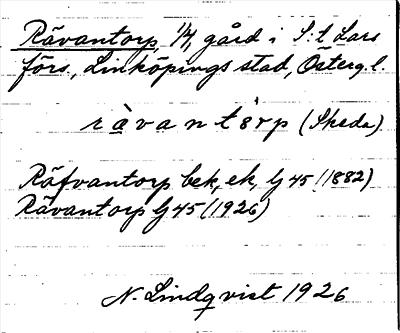 Rävantorp, 1/4, gård i S:t Lars
förs., Linköpings stad, Österg.l.
ràvantö̀rp (Skeda)
Räfvantorp bek, ek, lj 45 (1882)
Rävantorp lj 45 (1926)
N. Lindqvist 1926